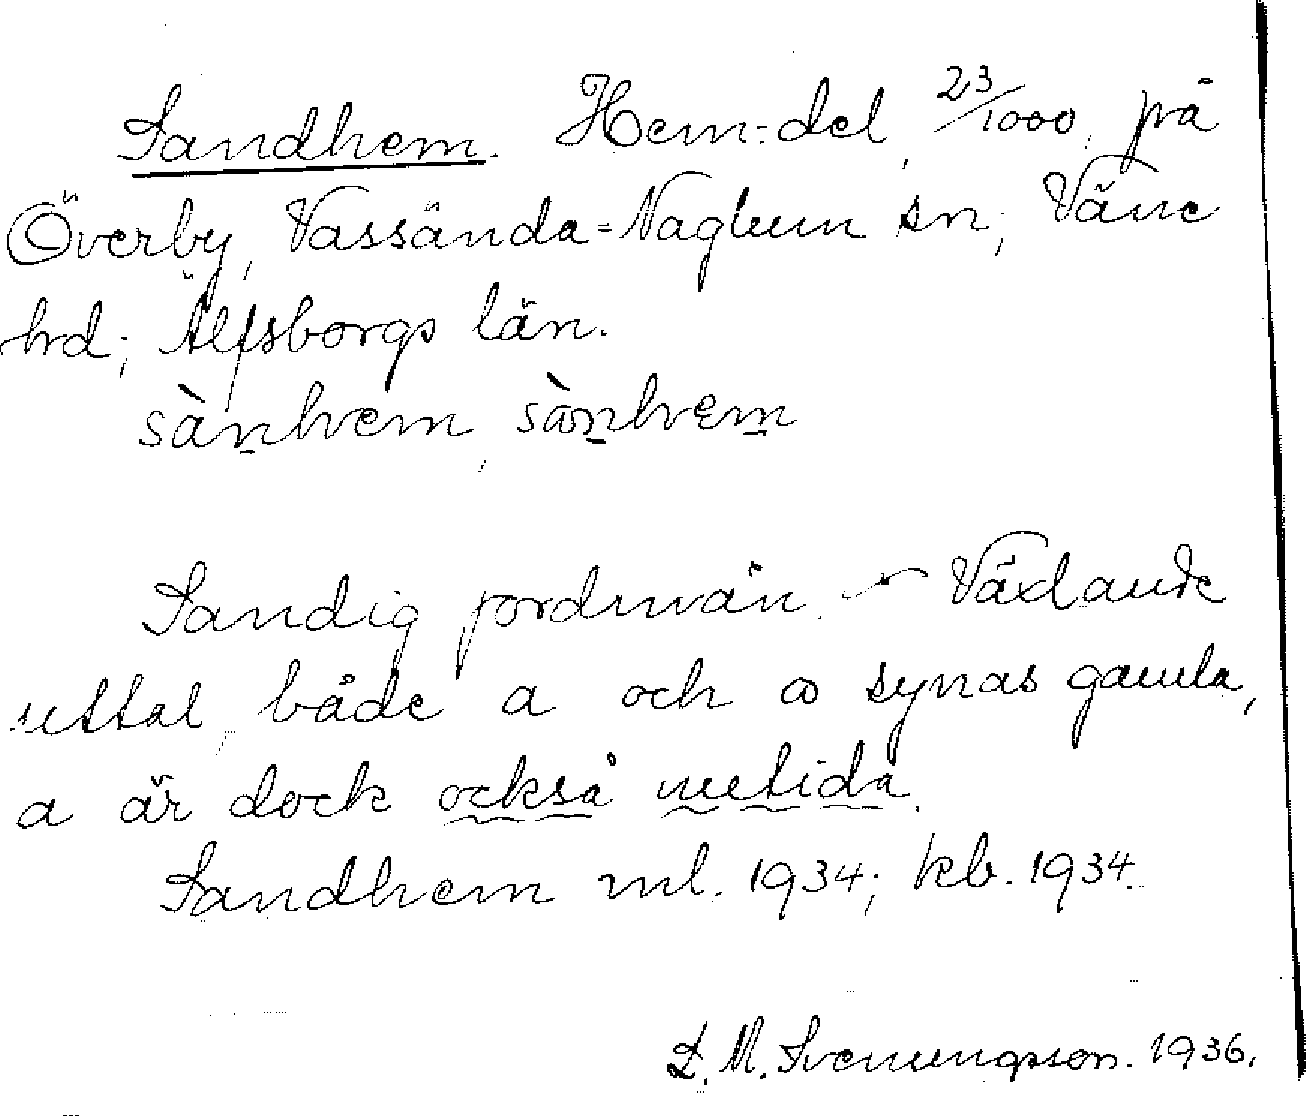 Sandhem. Hem:del, 23/1000, på
Överby, Vassända-Naglum sn; Väne
hd; Älfsborgs län.
sànhem, sònhem
Sandig jordmån. – Växlande
uttal, både a och ω synas gamla,
a är dock också nutida.
Sandhem ml. 1934; kb. 1934.
D. M. Svenungsson. 1936.